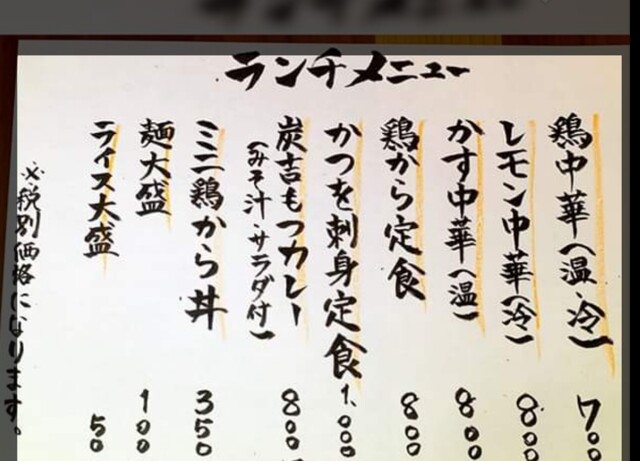 ランチメニュー
鶏中華(温・冷) 700
レモン中華(冷) 800
かす中華(温) 800
鶏から定食 800
かつを刺身定食 1,000
炭吉もつカレー 800
(みそ汁・サラダ付)
ミニ鶏から丼 350
麺大盛 100
ライス大盛 50
※税別価格になります。